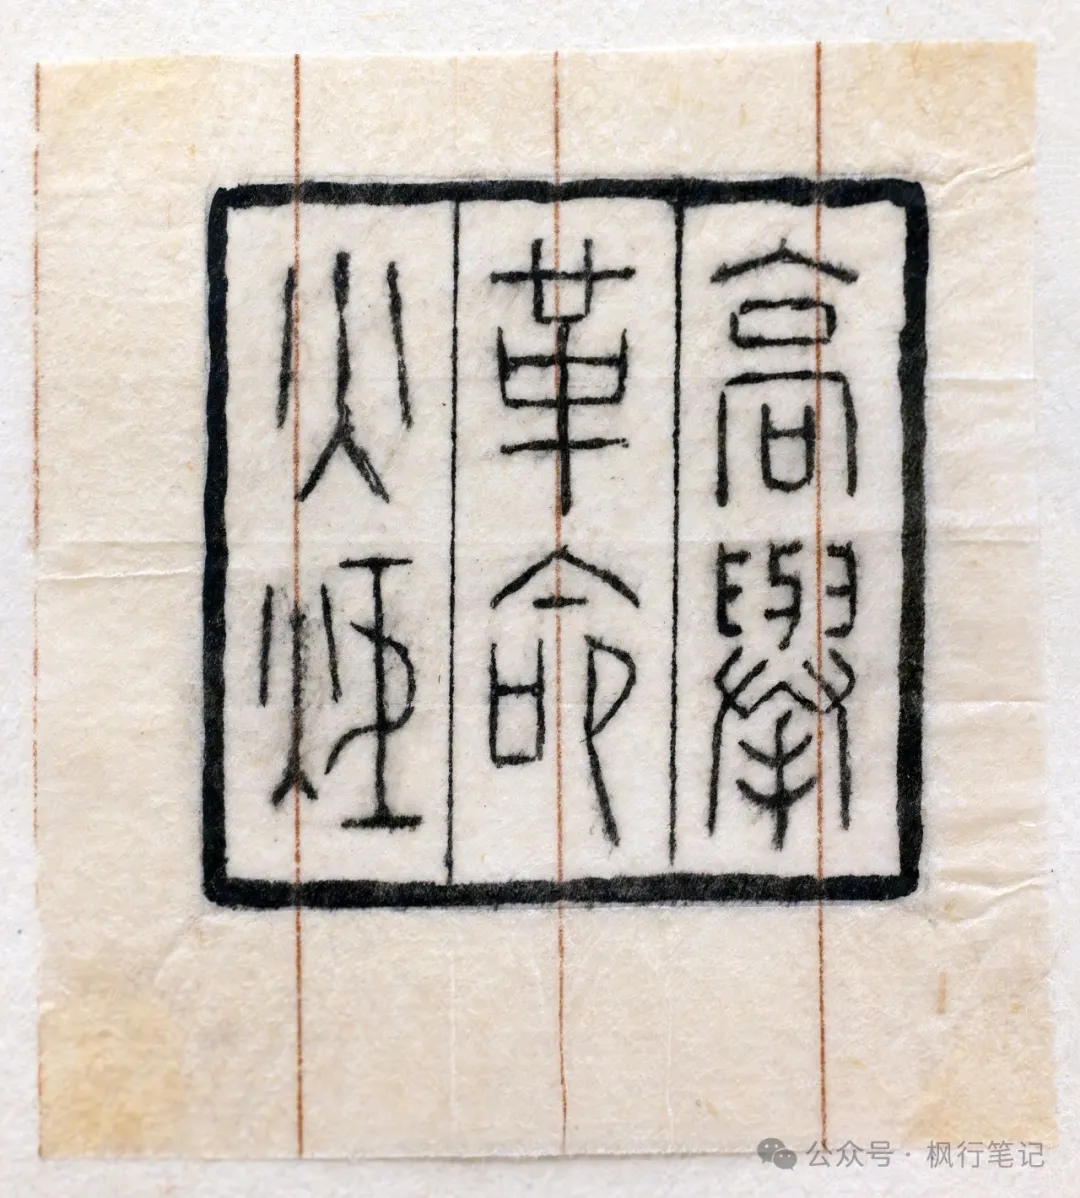 高舉
革命
火炬
公众号 · 枫行笔记